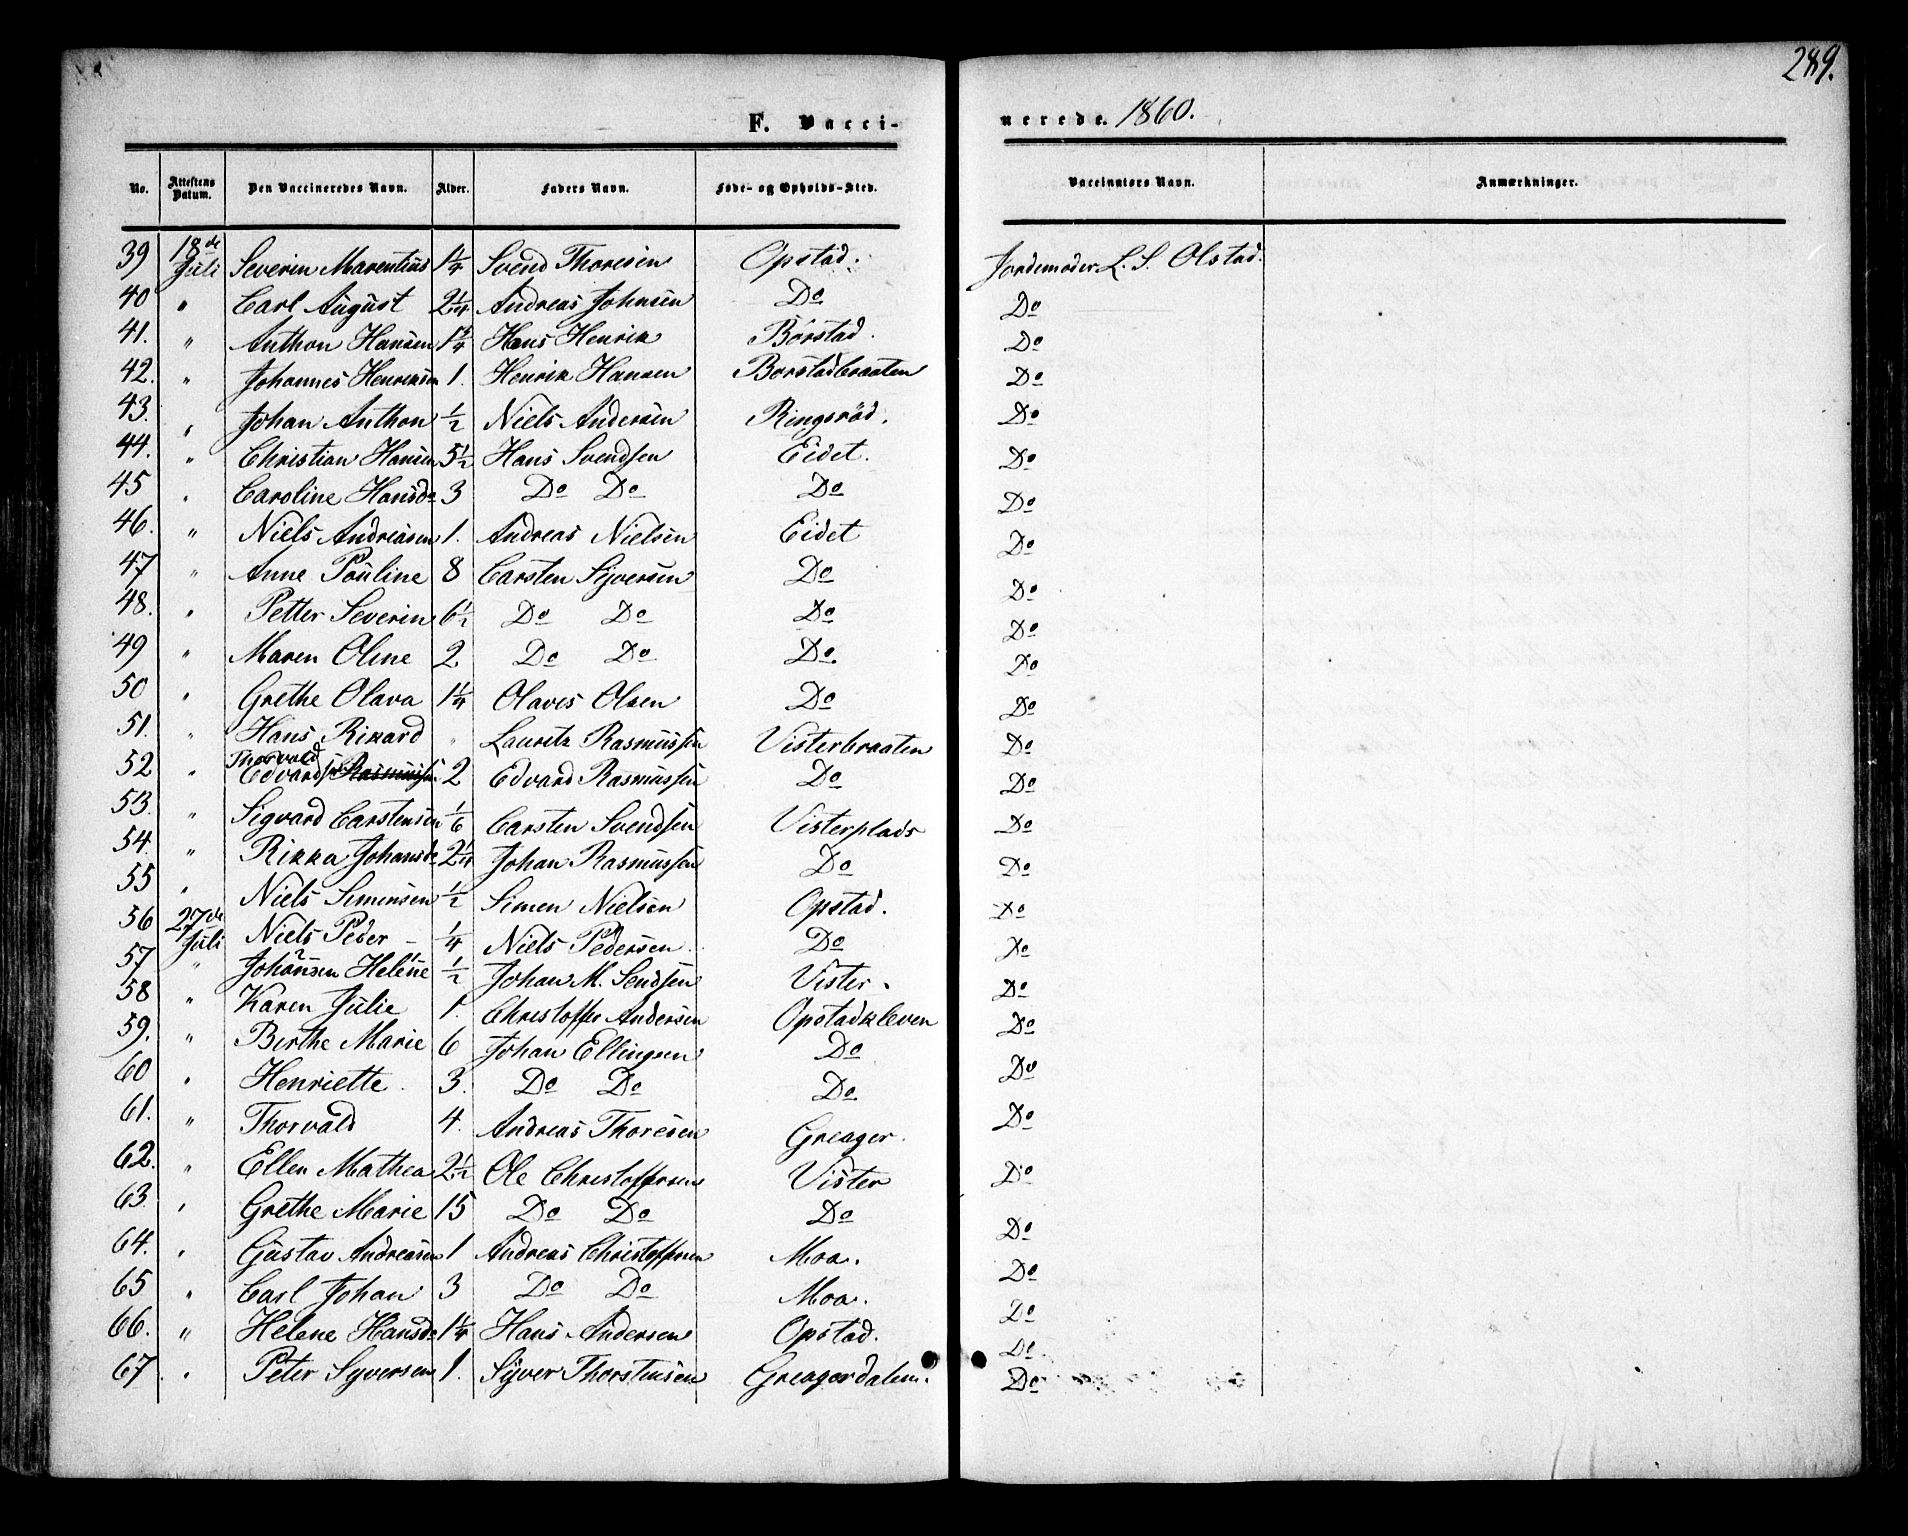 289.
F. Vacci-
nerede. 1860.
No. Attestens Datum. Den Vaccineredes Navn. Alder. Faders Navn. Føde- og Opholds-Sted. Vaccinators Navn. Anmærkninger.
39 18de Juli Severin Marentius 1¼ Svend Thoresen Opstad. Jordemoder L. S. Olstad.
40 " Carl August 2¼ Andreas Johnsen Do Do
41. " Anthon Hansen 1¾ Hans Henrik Borstad. Do
42. " Johannes Henriksen 1. Henrik Hansen Borstadbraaten Do
43. " Johan Anthon ½ Niels Andersen Ringsröd. Do
44. " Christian Hansen 5½ Hans Svendsen Eidet. Do
45 " Caroline Hansda 3 Do Do Do Do
46. " Niels Andreasen 1. Andreas Nielsen Eidet Do
47 " Anne Pouline 8 Carsten Syversen Do Do
48. " Petter Severin 6½ Do Do Do Do
49 " Maren Oline 2 Do Do Do. Do
50 " Grethe Olava 1¼ Olaves Olsen Do Do
51. " Hans Rikard " Lauritz Rasmussen Visterbraaten Do
52 " Thorvald Edvardsen Rasmussen 2 Edvard Rasmussen Do Do
53. " Sigvard Carstensen 1/6 Carsten Svendsen Visterplads Do
54. " Rikka Johansda 2¼ Johan Rasmussen Do Do
55 " Niels Simensen ½ Simen Nielsen Opstad. Do
56 27de Juli Niels Peder ¼ Niels Pedersen Do Do
57 " Johansen Helene ½ Johan M. Sendsen Vister. Do
58 " Karen Julie 1. Christoffer Andersen Opstadkleven Do
59. " Birthe Marie 6 Johan Ellingsen Do Do
60 " Henriette. 3. Do Do Do Do
61. " Thorvald 4. Andreas Thoresen Greager. Do
62. " Ellen Mathea 2½ Ole Christoffersen Vister Do
63. " Grethe Marie 15 Do Do Do Do
64. " Gustav Andreasen 1 Andreas Christoffersen Moa. Do
65 " Carl Johan 3 Do Do Moa. Do
66. " Helene Hansda 1¼ Hans Andersen Opstad. Do
67 " Peter Syversen 1. Syver Thorstensen Greagerdalen. Do